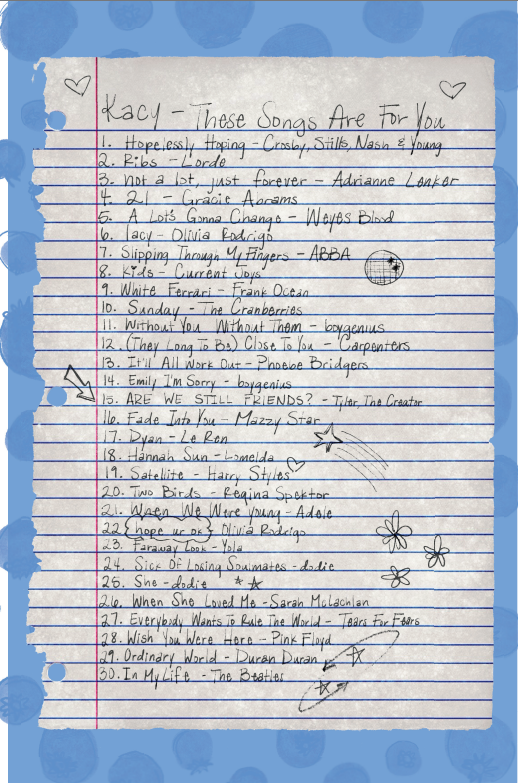 Kacy - These Songs Are For You
1. Hopelessly Hoping - Crosby, Stills, Nash & Young
2. Ribs - Lorde
3. not a lot, just forever - Adrianne Lenker
4. 21 - Gracie Abrams
5. A Lot's Gonna Change - Weyes Blood
6. lacy - Olivia Rodrigo
7. Slipping Through My Fingers - ABBA
8. Kids - Current Joys
9. White Ferrari - Frank Ocean
10. Sunday - The Cranberries
11. Without You Without Them - boygenius
12. (They Long To Be) Close To You - Carpenters
13. It'll All Work Out - Phoebe Bridgers
14. Emily I'm Sorry - boygenius
15. ARE WE STILL FRIENDS? - Tyler, The Creator
16. Fade Into You - Mazzy Star
17. Dyan - Le Ren
18. Hannah Sun - Lomelda
19. Satellite - Harry Styles
20. Two Birds - Regina Spektor
21. When We Were Young - Adele
22. hope ur ok Olivia Rodrigo
23. Faraway Look - Yola
24. Sick Of Losing Soulmates - dodie
25. She - dodie
26. When She Loved Me - Sarah McLachlan
27. Everybody Wants To Rule The World - Tears For Fears
28. Wish You Were Here - Pink Floyd
29. Ordinary World - Duran Duran
30. In My Life - The Beatles